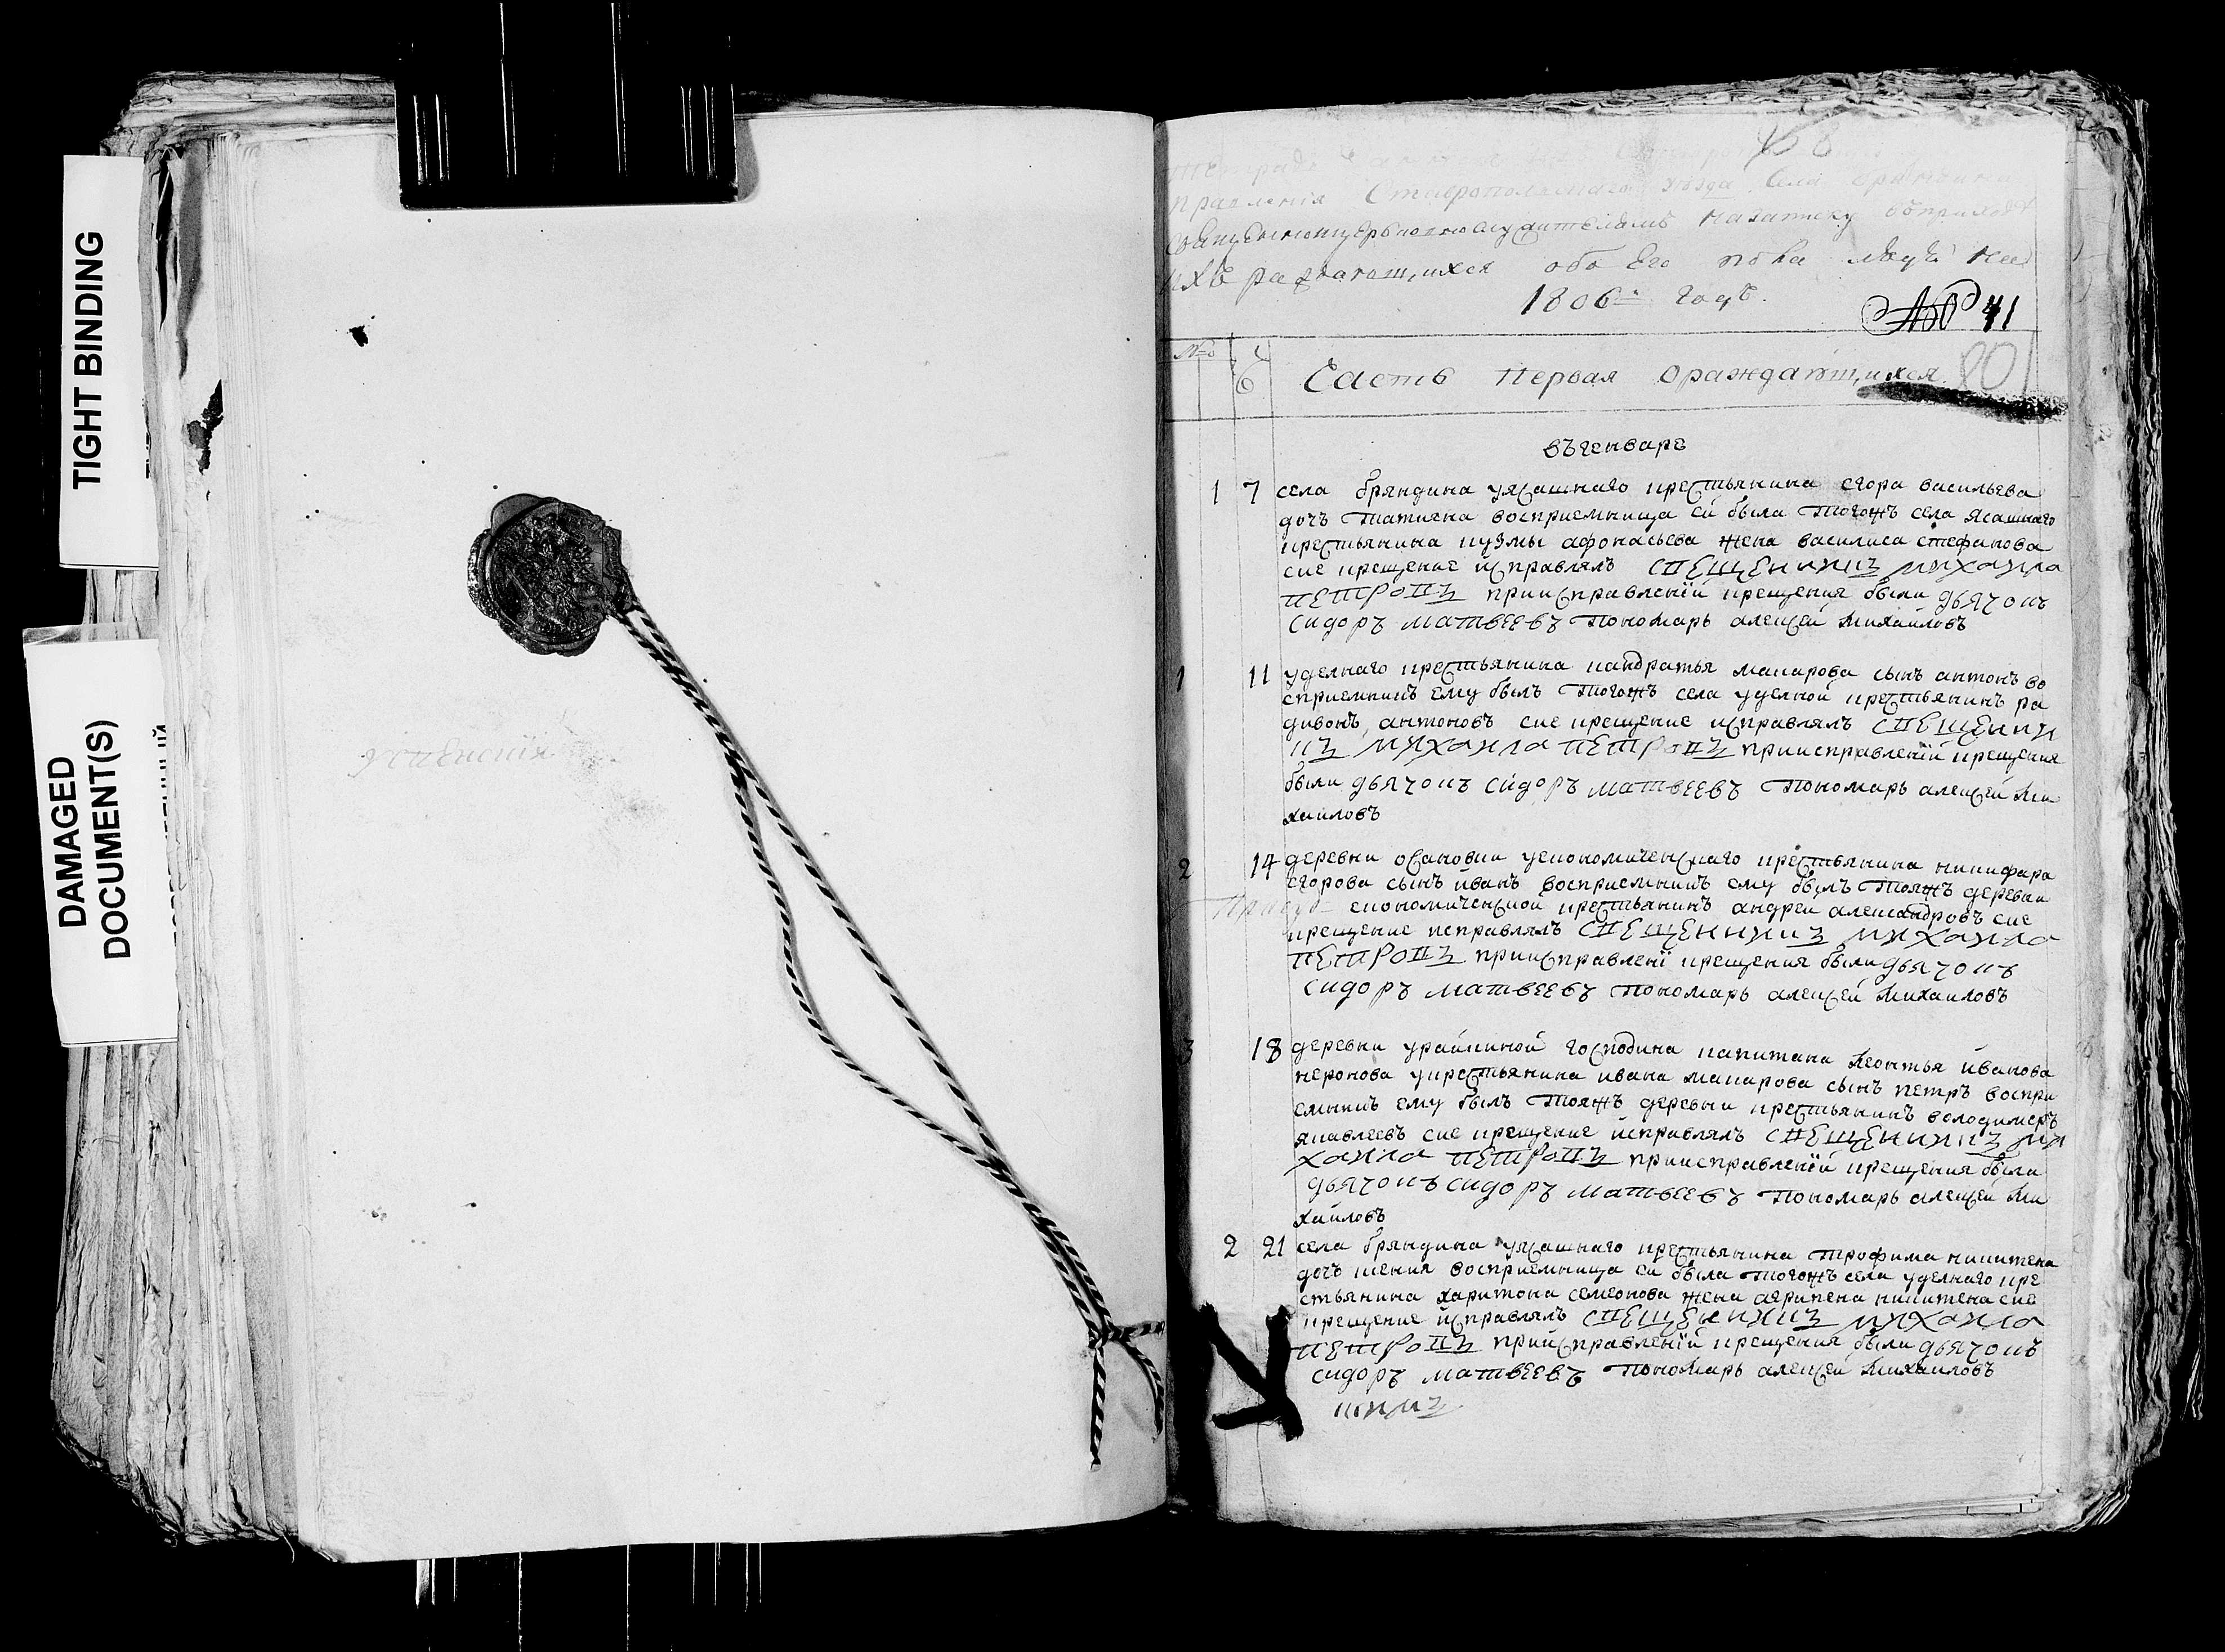 TIGHT BINDING
DAMAGED
DOCUMENT(S)
правленія Ставропольскаго уѣзда Села
священноцерковнослужителямъ назаписку въприходѣ
ихъ раждающихся обоего пола людей на
1806 годъ.
№ 41
№
Часть первая ораждающихся 801
въгенваре
1 7 села бряндина уясашнаго крестьянина егора васильева
дочь татияна восприемница ей была тогожъ села ясашнаго
крестьянина кузмы афонасьева жена василиса стефанова
сие крещение исправлялъ священникъ михаила
петровъ приисправленіи крещения были дьячокъ
сидоръ матвеевъ пономарь алексей михайловъ
1 11 уделнаго крестьянина кандратья макарова сынъ антонъ во
сприемникъ ему былъ тогожъ села уделной крестьянинъ ра
дивонъ антоновъ сие крещение исправлялъ священни
къ михаила петровъ приисправленіи крещения
были дьячокъ сидоръ матвеевъ пономарь алексей ми
хаиловъ
2 14 деревни осановки уекономическаго крестьянина никифара
егорова сынъ иванъ восприемникъ ему былъ тояжъ деревни
економической крестьянинъ андрей александровъ сие
крещение исправлялъ священникъ михаила
петровъ приисправлені крещения были дьячокъ
сидоръ матвеевъ пономарь алексей михаиловъ
3 18 деревни урайкиной господина капитана леонтья иванова
неронова укрестьянина ивана макарова сынъ петръ воспри
емникъ ему былъ тояжъ деревни крестьянинъ володимеръ
яковлевъ сие крещение исправлялъ священникъ ми
хаила петровъ приисправленіи крещения были
дьячокъ сидоръ матвеевъ пономарь алексей ми
хаиловъ
2 21 села бряндина уясашнаго крестьянина трофима никитена
дочь ксения восприемница ей была тогожъ села уделнаго кре
стьянина харитона семеонова жена агрипена никитена сие
крещение исправлялъ священникъ михаила
петровъ приисправленіи крещения были дьячокъ
сидоръ матвеевъ пономарь алексей михаиловъ